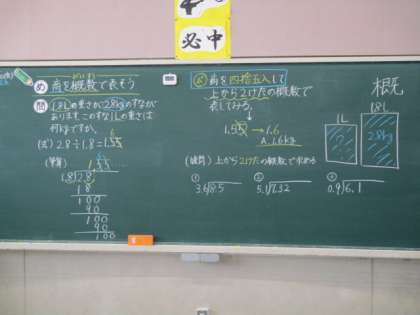 必中
め 商を概数で表そう
問 1.8Lの重さが2.8kgのすなが
あります。このすな1Lの重さは
何kgですか。
(式) 2.8÷1.8=1.55
(筆算)
1.55
1.8)2.8
18
100
90
100
90
100
商を四捨五入して
上から2けたの概数で
表してみる。
1.55→1.6
A. 1.6kg
(練習) 上から2けたの概数で求める
① ② ③
3.6)8.5 5.1)7.32 0.9)6.1
概
1.8L
1L
2.8kg